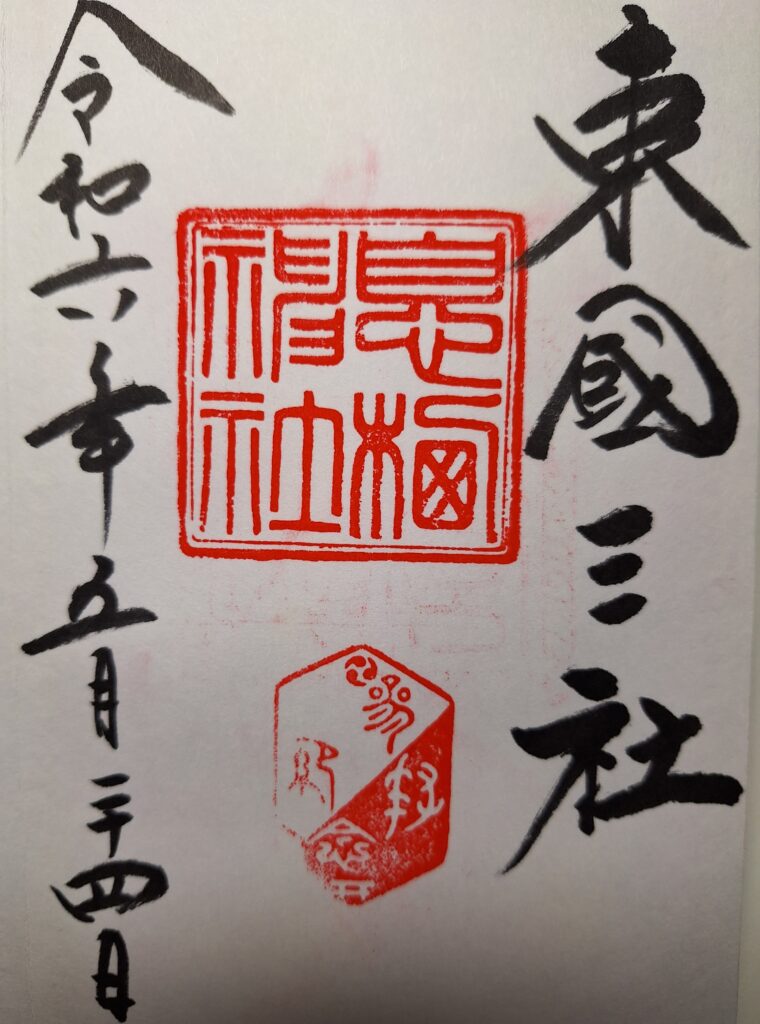 東國三社
息栖神社
令和六年五月二十四日